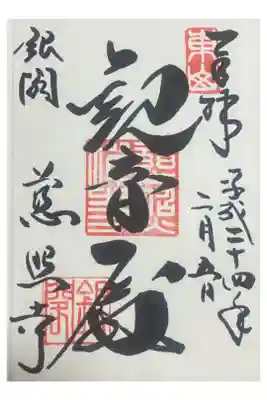 奉拝
東山
平成二十四年
二月五日
観音殿
銀閣
慈照寺